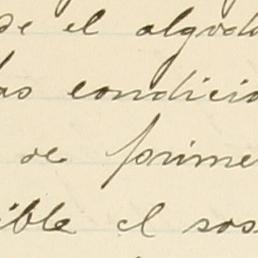 de el algodo
las condicio
de prime
ible el sos